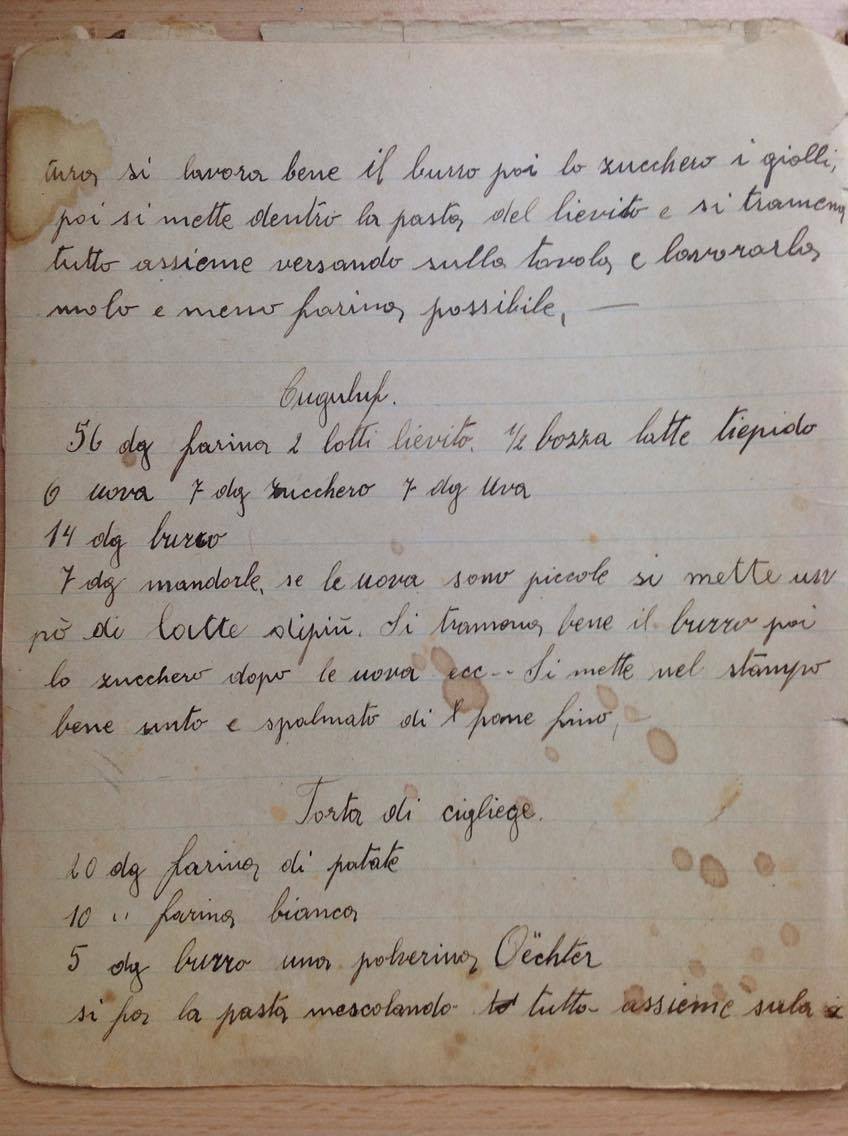 tura si lavora bene il burro poi lo zucchero i giolli,
poi si mette dentro la pasta del lievito e si tramena
tutto assieme versando sulla tavola e lavorarla
molo e meno farina possibile, —
Cuguluf.
56 dg farina 2 lotti lievito. 1/2 bozza latte tiepido
6 uova 7 dg zucchero 7 dg uva
14 dg burro
7 dg mandorle, se le uova sono piccole si mette un
pò di latte dipiù. Si tramena bene il burro poi
lo zucchero dopo le uova ecc-- Si mette nel stampo
bene unto e spalmato di pane fino, -
Torta di cigliege.
20 dg farina di patate
10 " farina bianca
5 dg burro una polverina Oëchter
si fa la pasta mescolando tutto assieme sula